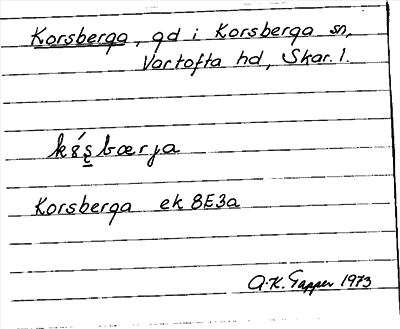 Korsberga, gd i Korsberga sn,
Vartofta hd, Skar. l.
Korsberga ek 8E3a
A.K. Tapper 1973